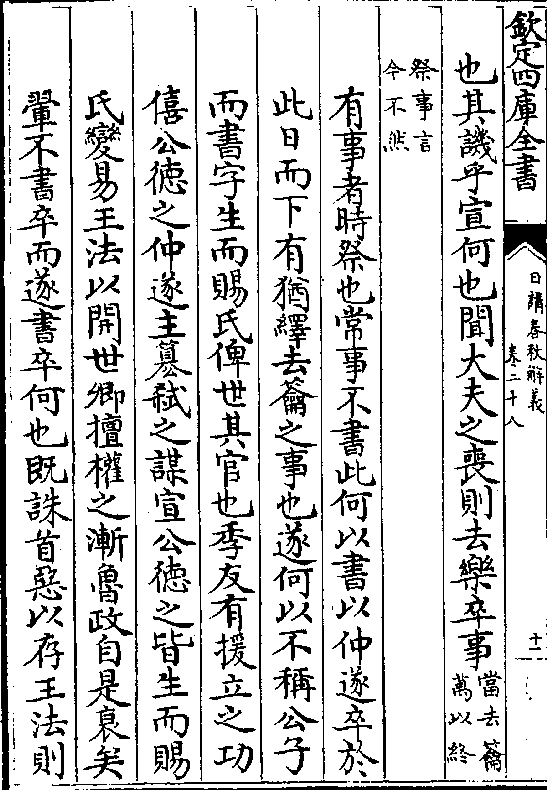 欽定四庫全書
日講春秋解義
卷二十八
十一
也其譏乎宣何也聞大夫之喪則去樂卒事當去籥
萬以終
祭事言
今不然
有事者時祭也常事不書此何以書以仲遂卒於
此日而下有猶繹去籥之事也遂何以不稱公子
而書字生而賜氏俾世其官也季友有援立之功
僖公德之仲遂主簒弑之謀宣公德之皆生而賜
氏變易王法以開世卿擅權之漸魯政自是衰矣
翬不書卒而遂書卒何也既誅首惡以存王法則